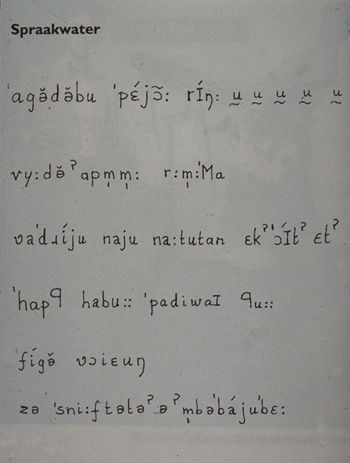 Spraakwater
ˈagə̆də̆bu ˈpɛ́jɔ̃: rÍŋ: ṵ ṵ ṵ ṵ ṵ
vy:də̆ˀapm̩m̩: r:m̩:ˈMa
ʋaˈdɹíju naju na:tutan ɛkˀˈɔ́Itˀ ɛtˀ
ˈhapꟼ habu:: ˈpadiwaI ꟼu::
ˈfígə̆ vɔiɛuŋ
zə ˈsni:ftətəˀəˀm̩bəˈbájuˈbɛ: